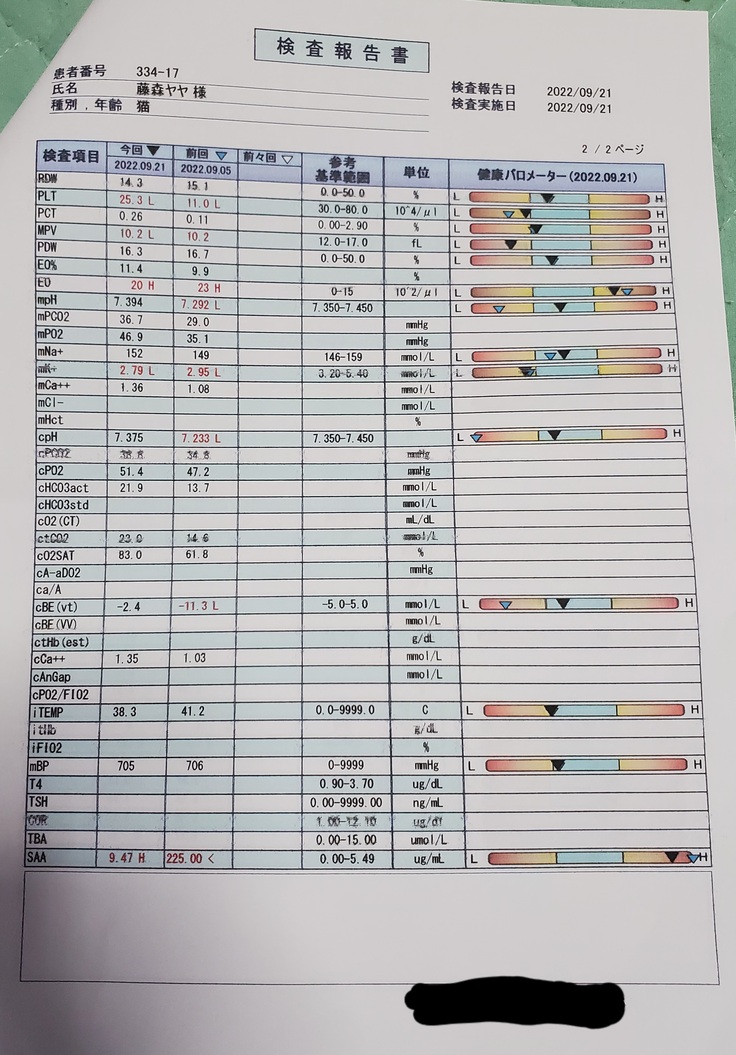 検査報告書
患者番号 334-17
氏名 藤森ヤヤ 様
種別 , 年齢 猫
検査報告日 2022/09/21
検査実施日 2022/09/21
2 / 2 ページ
検査項目 今回▼ 前回▽ 前々回▽ 参考基準範囲 単位 健康バロメーター(2022.09.21)
2022.09.21 2022.09.05
RDW 14.3 15.1 0.0-50.0 % L H
PLT 25.3 L 11.0 L 30.0-80.0 10^4/μl L H
PCT 0.26 0.11 0.00-2.90 % L H
MPV 10.2 L 10.2 12.0-17.0 fL L H
PDW 16.3 16.7 0.0-50.0 % L H
EO% 11.4 9.9 %
EO 20 H 23 H 0-15 10^2/μl L H
mpH 7.394 7.292 L 7.350-7.450 L H
mPCO2 36.7 29.0 mmHg
mPO2 46.9 35.1 mmHg
mNa+ 152 149 146-159 mmol/L L H
mK+ 2.79 L 2.95 L 3.20-5.40 mmol/L L H
mCa++ 1.36 1.08 mmol/L
mCl- mmol/L
mHct %
cpH 7.375 7.233 L 7.350-7.450 L H
cPCO2 38.8 34.8 mmHg
cPO2 51.4 47.2 mmHg
cHCO3act 21.9 13.7 mmol/L
cHCO3std mmol/L
cO2(CT) mL/dL
ctCO2 23.0 14.6 mmol/L
cO2SAT 83.0 61.8 %
cA-aDO2 mmHg
ca/A
cBE(vt) -2.4 -11.3 L -5.0-5.0 mmol/L L H
cBE(VV) mmol/L
ctHb(est) g/dL
cCa++ 1.35 1.03 mmol/L
cAnGap mmol/L
cPO2/FIO2
iTEMP 38.3 41.2 0.0-9999.0 C L H
itHb g/dL
iFIO2 %
mBP 705 706 0-9999 mmHg L H
T4 0.90-3.70 ug/dL
TSH 0.00-9999.00 ng/mL
COR 1.00-12.10 ug/dl
TBA 0.00-15.00 umol/L
SAA 9.47 H 225.00 < 0.00-5.49 ug/mL L H